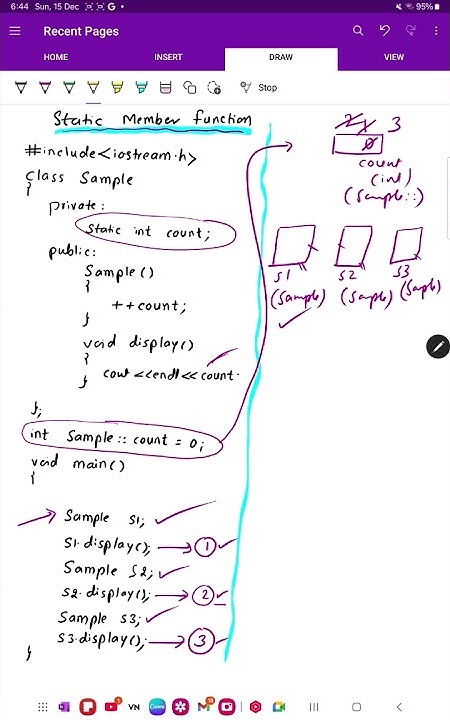 6:44 Sun, 15 Dec
95%
Recent Pages
HOME INSERT DRAW VIEW
Stop
Static Member function
#include<iostream.h>
class Sample
{
private:
static int count;
public:
Sample()
{
++count;
}
void display()
{
cout <<endl<< count.
}
};
int Sample:: count = 0;
void main()
{
Sample S1;
S1.display(); → 1
Sample S2;
S2.display(); → 2
Sample S3;
S3.display(); → 3
}
2 1 3
0
count
(int)
(Sample::)
S1 S2 S3
(Sample) (Sample) (Sample)
VN
Canva